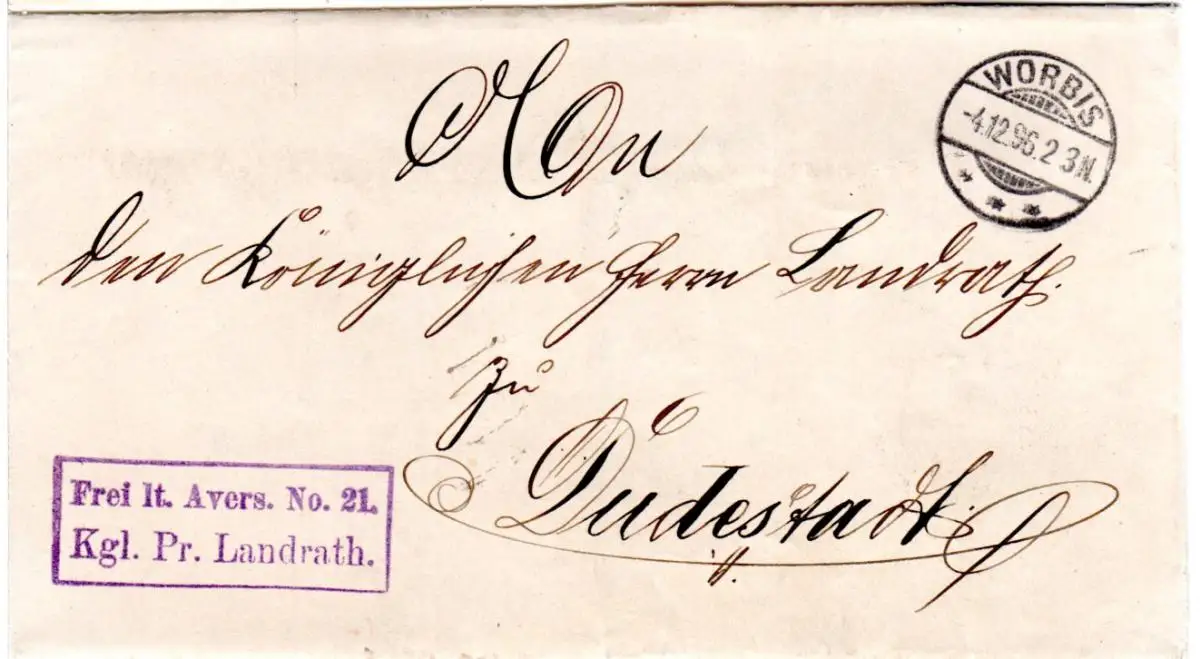 WORBIS
-4.12.96.2 3N.
An
den Königlichen Herrn Landrath.
zu
Dudestadt.
Frei lt. Avers. No. 21.
Kgl. Pr. Landrath.